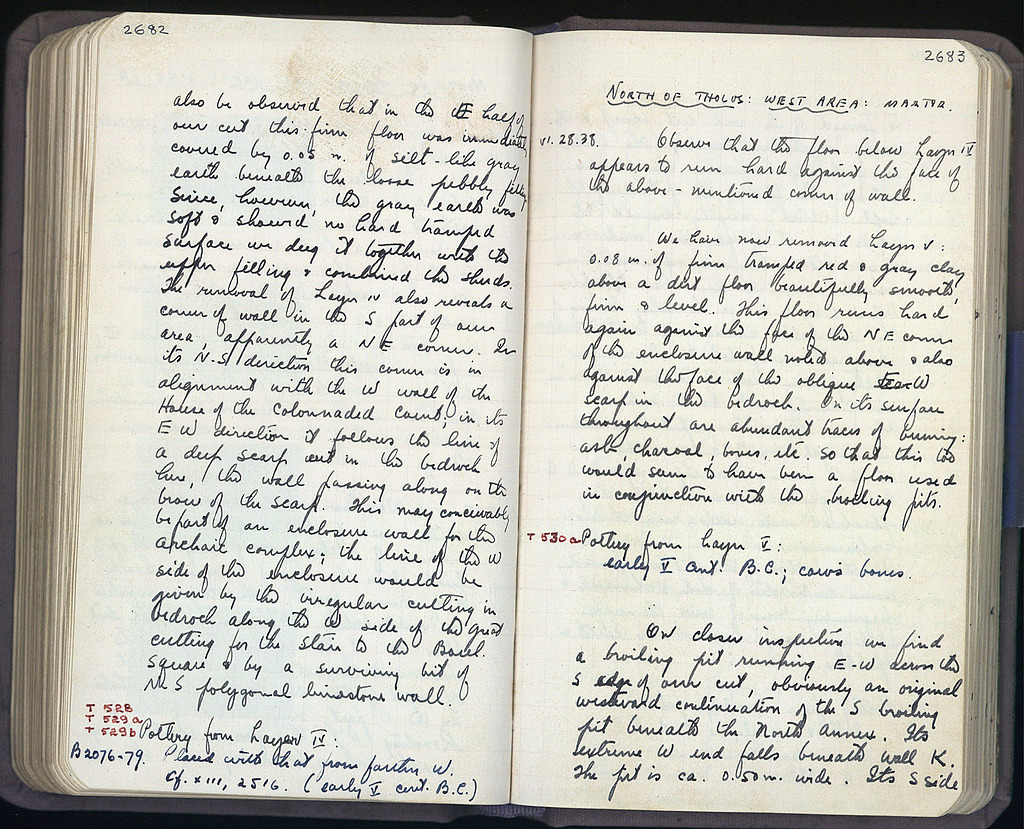 2682
also be observed that in the E half of
our cut this firm floor was immediately
covered by 0.05 m. of silt-like gray
earth beneath the loose pebbly filling.
Since, however, the gray earth was
soft & showed no hard tramped
surface we dug it together with the
upper filling & combined the sherds.
The removal of Layer IV also reveals a
corner of wall in the S part of our
area, apparently a NE corner. In
its N-S direction this corner is in
alignment with the W wall of the
House of the Colonnaded Court; in its
E W direction it follows the line of
a deep scarp cut in the bedrock
here, the wall passing along on the
brow of the scarp. This may conceivably
be part of an enclosure wall for the
archaic complex; the line of the W
side of the enclosure would be
given by the irregular cutting in
bedrock along the W side of the great
cutting for the stair to the Bouel.
square & by a surviving bit of
N-S polygonal limestone wall.
T 528
T 529a
T 529b
Pottery from Layer IV:
B2076-79. Placed with that from farther W.
Cf. XIII, 2516. (early V cent. B.C.)
2683
NORTH OF THOLOS: WEST AREA: MARTYR.
VI. 28.38. Observe that the floor below Layer IV
appears to run hard against the face of
the above-mentioned corner of wall.
We have now removed Layer V:
0.08 m. of firm tramped red & gray clay
above a dirt floor beautifully smooth,
firm & level. This floor runs hard
again against the face of the NE corner
of the enclosure wall noted above & also
against the face of the oblique W
scarp in the bedrock. On its surface
throughout are abundant traces of burning:
ash, charcoal, bones, etc. So that this too
would seem to have been a floor used
in conjunction with the broiling pits.
T 530a Pottery from Layer V:
early V cent. B.C.; cows bones.
On closer inspection we find
a broiling pit running E-W across the
S edge of our cut, obviously an original
westward continuation of the S broiling
pit beneath the North Annex. Its
extreme W end falls beneath wall K.
The pit is ca. 0.50 m. wide. Its S side